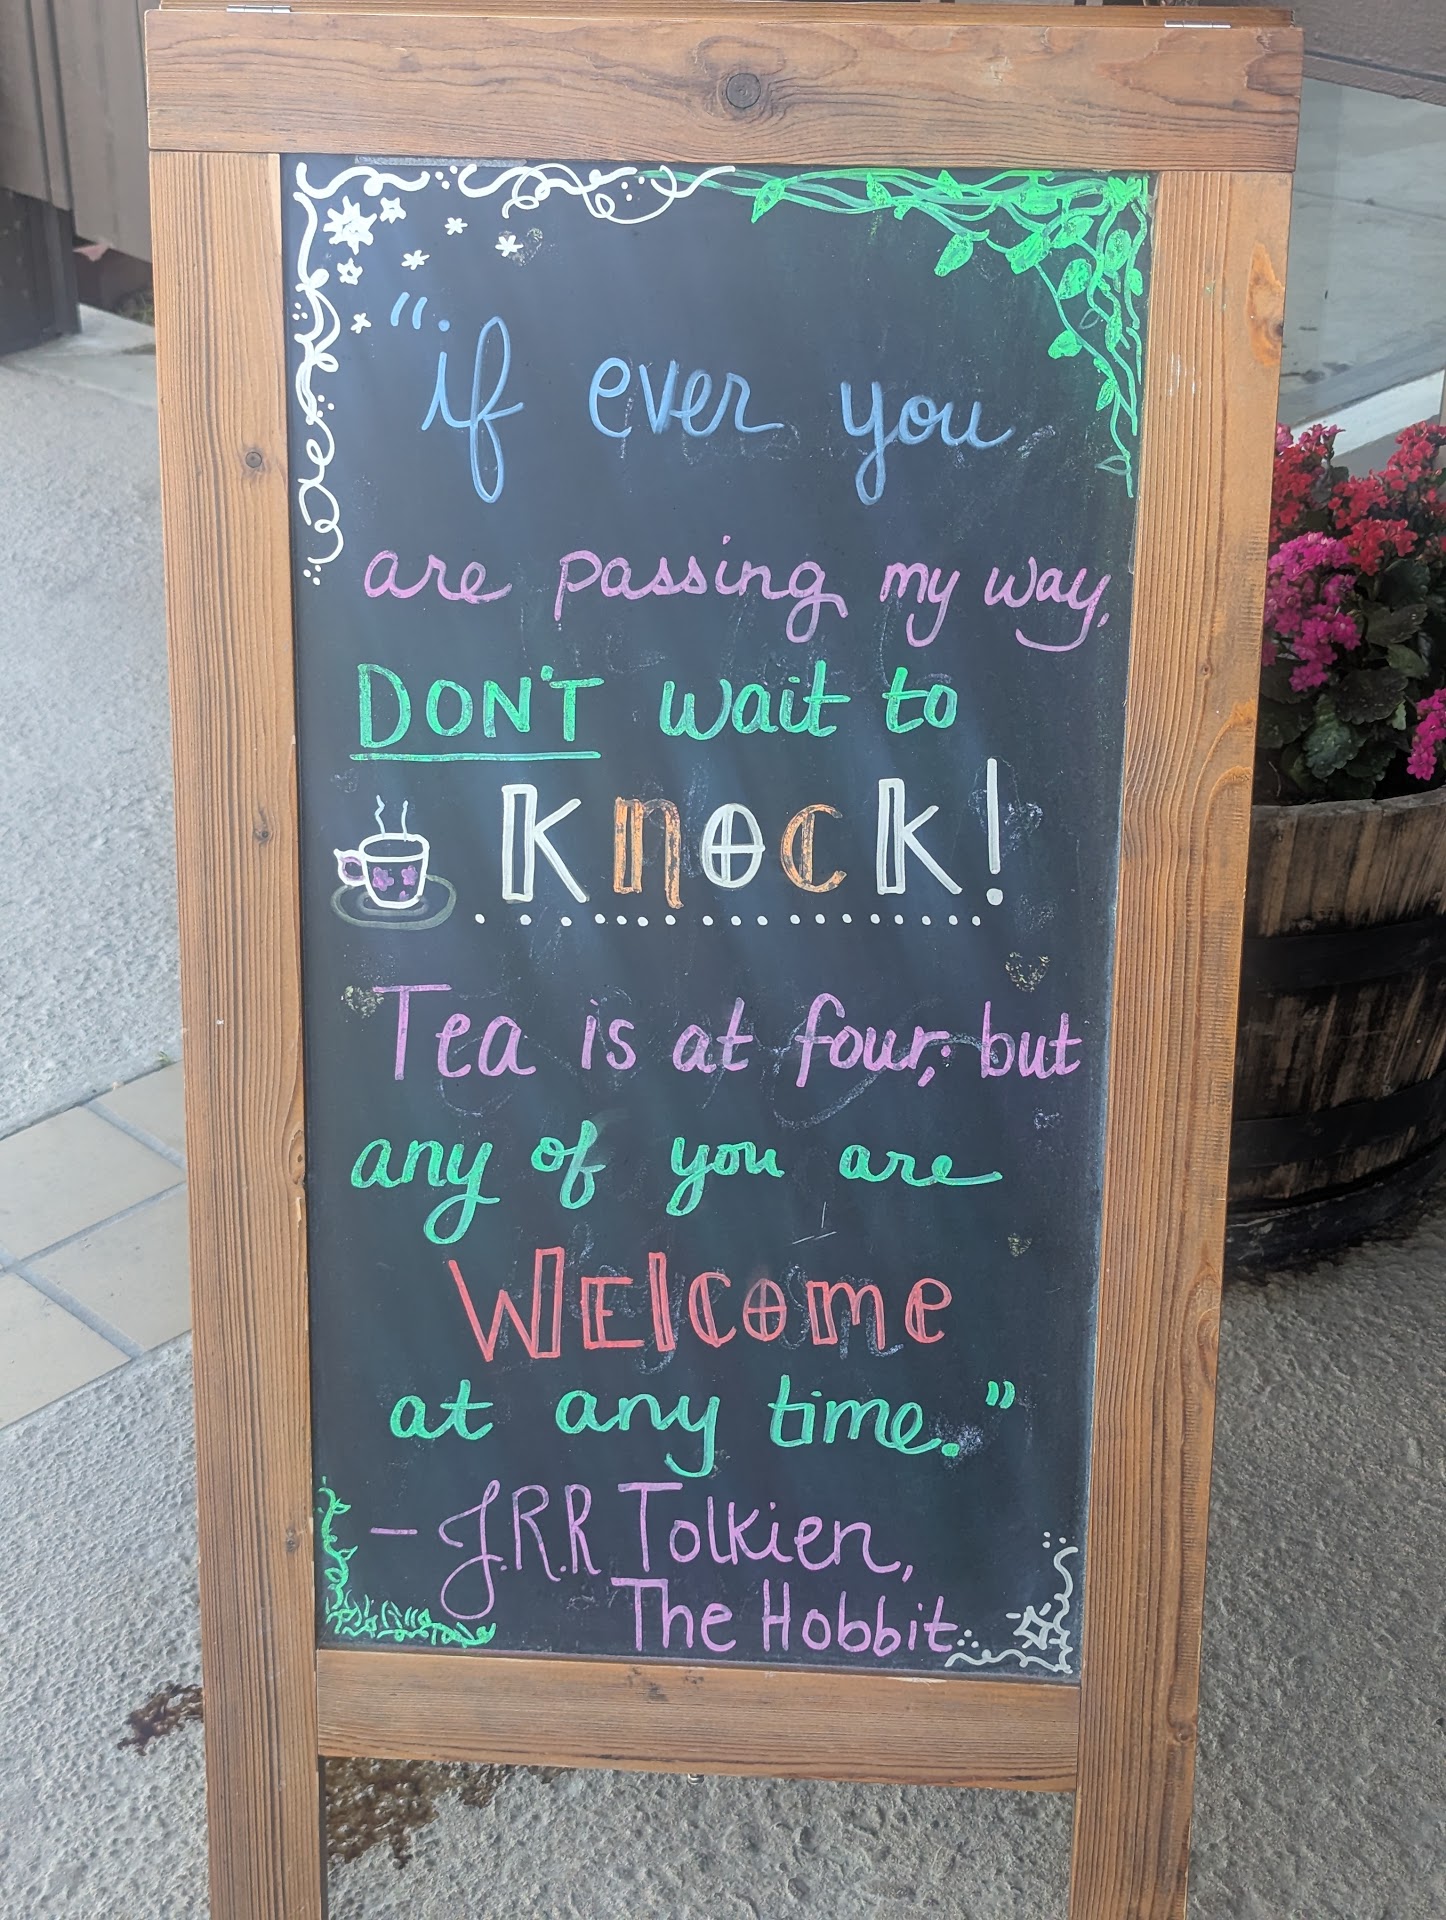 "if ever you
are passing my way,
DON'T wait to
KNOCK!
Tea is at four; but
any of you are
WElcome
at any time."
- J.R.R Tolkien,
The Hobbit